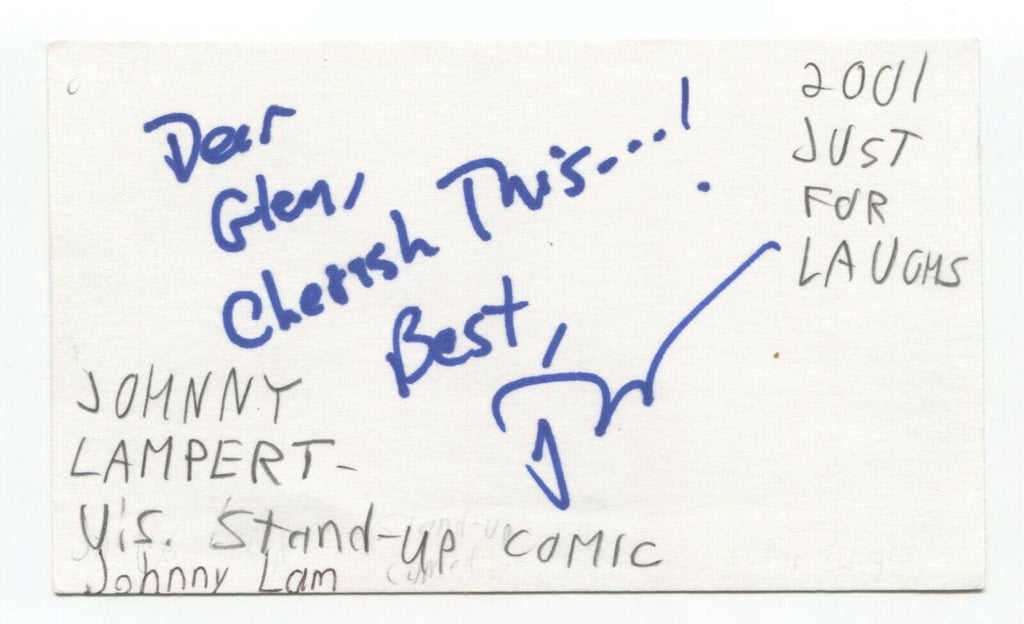 Dear
Glen,
Cherish This...!
Best,
2001
JUST
FOR
LAUGHS
JOHNNY
LAMPERT-
U.S. Stand-up COMIC
Johnny Lam